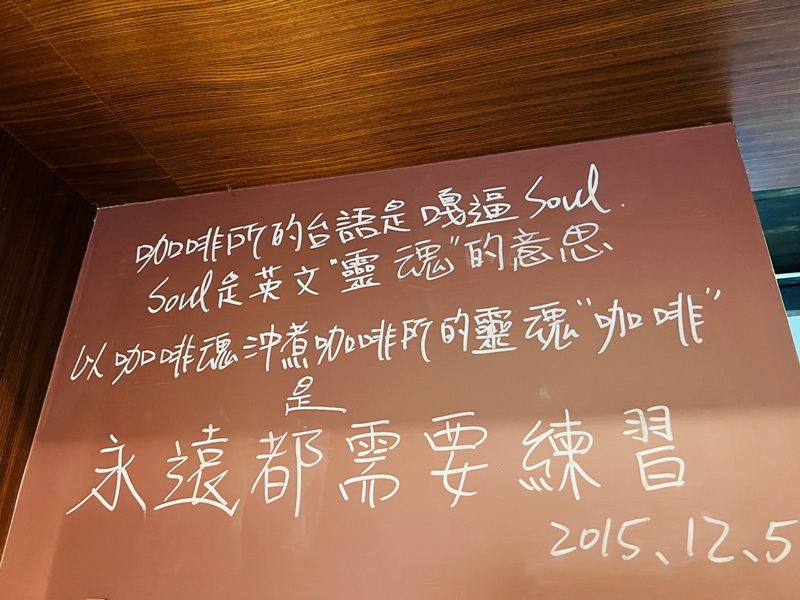 咖啡所的台語是嘎逼Soul.
Soul是英文"靈魂"的意思
以咖啡魂沖煮咖啡所的靈魂"咖啡"
是
永遠都需要練習
2015、12、5